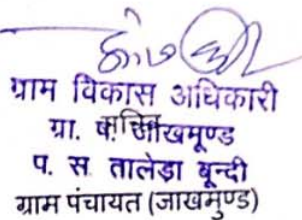 ग्राम विकास अधिकारी
ग्रा. जाखमूण्ड
प. स तालेड़ा बून्दी
ग्राम पंचायत (जाखमुण्ड)